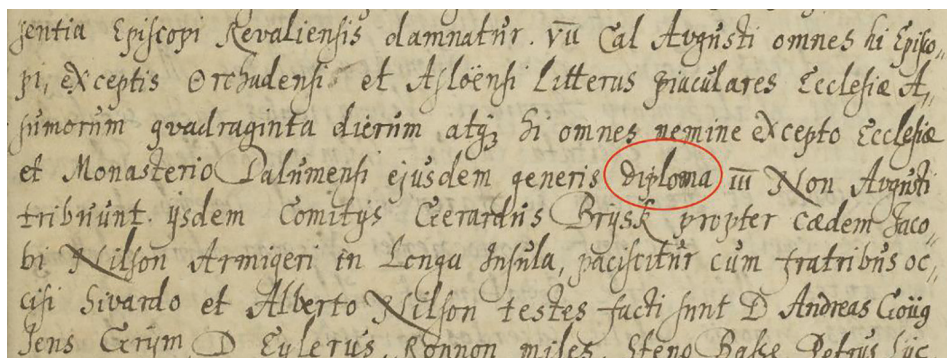 sentia Episcopi Revaliensis damnatur. VII Cal Avgusti omnes hi Episco„
pi, exceptis Orchadensi et Asloënsi Litteras piaculares Ecclesiæ A„
sumorum qvadraginta dierum atqꝫ hi omnes nemine excepto Ecclesiæ
et Monasterio Dalumensi ejusdem generis diploma III Non Avgusti
tribuunt. ijsdem Comitijs Gerardus Brysk propter cædem Jaco„
bi Nilson Armigeri in Longa Insula, paciscitur cum fratribus oc„
cisi Sivardo et Alberto Nilson testes facti sunt D Andreas
Jens Grijm D Eylerus Ronnon miles, Steno Basse Petrus